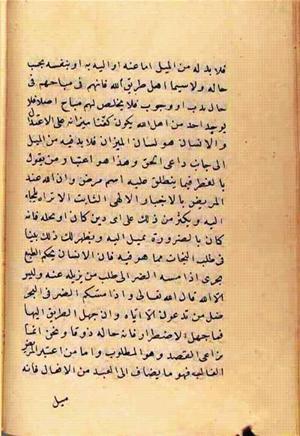 فلا بد له من الميل اما عنه او اليه به او بنفسه بحسب
حاله ولا سيما اهل طريق الله فانهم في مباحهم في
حال ندب او وجوب فلا يخلص لهم مباح اصلا فلا
يوجد احد من اهل الله يكون كفتا ميزانه على الاعتدال
والانسان هو لسان الميزان فلا بد فيه من الميل
الى جانب داعي الحق وهذا هو اعتبار من يقول
بالفطر فيما ينطلق عليه اسم مرض وان الله عند
المريض بالاخبار الالهي الثابت الا تراه يلجأ
اليه ويكثر من ذكره على اي دين كان او نحلة فانه
كان بالضرورة يميل اليه ويظهر لك ذلك بينا
في طلب النجاة مما هو فيه فان الانسان بحكم الطبع
يجري اذا مسه الضر الى طلب من يزيله عنه وليس
الا الله قال الله تعالى واذا مسكم الضر في البحر
ضل من تدعون الا اياه وان جهل الطريق اليها
فما جهل الاضطرار فانه حاله ذوقا ونحن انما
نراعي القصد وهو المطلوب واما من اعتبر المرض
الغالب فهو ما يضاف الى العبد من الافعال فانه
ميل